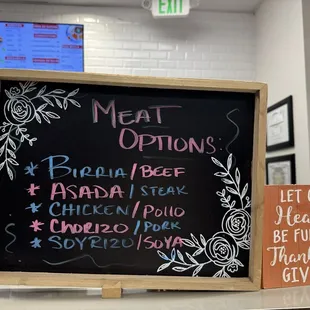 EXIT
MEAT
OPTIONS:
* BIRRIA/BEEF
* ASADA/STEAK
* CHICKEN/POLLO
* CHORIZO/PORK
* SOYRIZO/SOYA
LET
BE FU
GIV